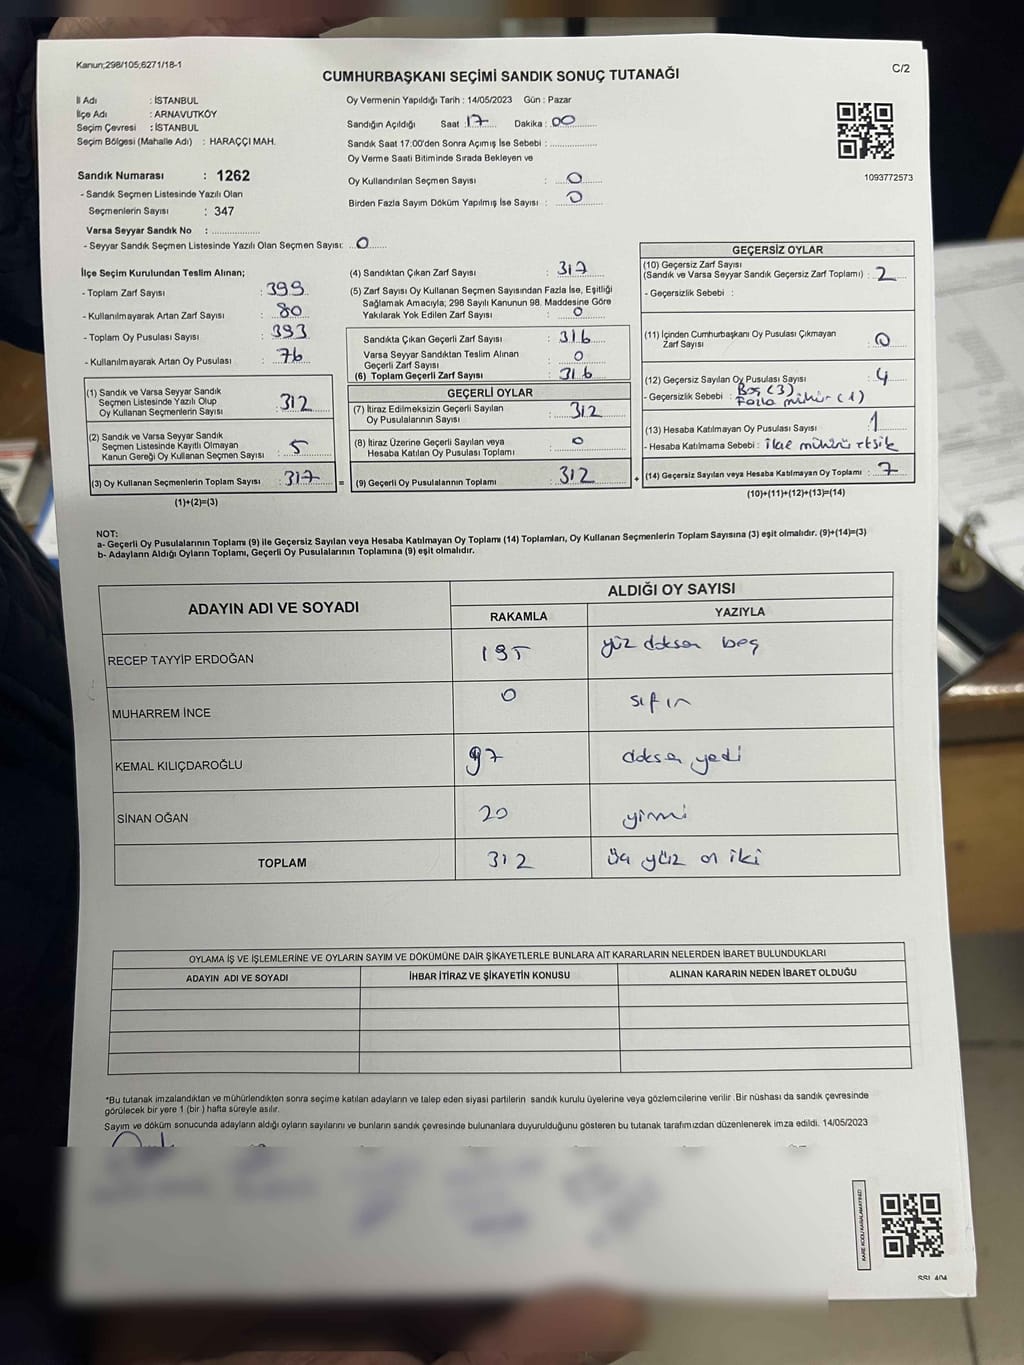 Kanun;298/105,6271/18-1
C/2
CUMHURBAŞKANI SEÇİMİ SANDIK SONUÇ TUTANAĞI
İl Adı : İSTANBUL
İlçe Adı : ARNAVUTKÖY
Seçim Çevresi : İSTANBUL
Seçim Bölgesi (Mahalle Adı) : HARAÇÇI MAH.
Sandık Numarası : 1262
- Sandık Seçmen Listesinde Yazılı Olan
Seçmenlerin Sayısı : 347
Varsa Seyyar Sandık No : ..................
- Seyyar Sandık Seçmen Listesinde Yazılı Olan Seçmen Sayısı: 0
Oy Vermenin Yapıldığı Tarih : 14/05/2023 Gün : Pazar
Sandığın Açıldığı Saat : 17 Dakika : 00
Sandık Saat 17:00'den Sonra Açımış İse Sebebi : ..................
Oy Verme Saati Bitiminde Sırada Bekleyen ve
Oy Kullandırılan Seçmen Sayısı : 0
Birden Fazla Sayım Döküm Yapılmış İse Sayısı : 0
1093772573
İlçe Seçim Kurulundan Teslim Alınan;
- Toplam Zarf Sayısı : 399
- Kullanılmayarak Artan Zarf Sayısı : 80
- Toplam Oy Pusulası Sayısı : 393
- Kullanılmayarak Artan Oy Pusulası : 76
(1) Sandık ve Varsa Seyyar Sandık
Seçmen Listesinde Yazılı Olup
Oy Kullanan Seçmenlerin Sayısı : 312
(2) Sandık ve Varsa Seyyar Sandık
Seçmen Listesinde Kayıtlı Olmayan
Kanun Gereği Oy Kullanan Seçmen Sayısı : 5
(3) Oy Kullanan Seçmenlerin Toplam Sayısı : 317
(1)+(2)=(3)
=
(4) Sandıktan Çıkan Zarf Sayısı : 317
(5) Zarf Sayısı Oy Kullanan Seçmen Sayısından Fazla İse, Eşitliği
Sağlamak Amacıyla; 298 Sayılı Kanunun 98. Maddesine Göre
Yakılarak Yok Edilen Zarf Sayısı : 0
Sandıkta Çıkan Geçerli Zarf Sayısı : 316
Varsa Seyyar Sandıktan Teslim Alınan
Geçerli Zarf Sayısı : 0
(6) Toplam Geçerli Zarf Sayısı : 316
GEÇERLİ OYLAR
(7) İtiraz Edilmeksizin Geçerli Sayılan
Oy Pusulalarının Sayısı : 312
(8) İtiraz Üzerine Geçerli Sayılan veya
Hesaba Katılan Oy Pusulası Toplamı : 0
(9) Geçerli Oy Pusulalarının Toplamı : 312
+
GEÇERSİZ OYLAR
(10) Geçersiz Zarf Sayısı
(Sandık ve Varsa Seyyar Sandık Geçersiz Zarf Toplamı) : 2
- Geçersizlik Sebebi :
(11) İçinden Cumhurbaşkanı Oy Pusulası Çıkmayan
Zarf Sayısı : 0
(12) Geçersiz Sayılan Oy Pusulası Sayısı : 4
- Geçersizlik Sebebi : Boş (3)
Fazla mühür (1)
(13) Hesaba Katılmayan Oy Pusulası Sayısı : 1
- Hesaba Katılmama Sebebi : ilçe mühürü eksik
(14) Geçersiz Sayılan veya Hesaba Katılmayan Oy Toplamı : 7
(10)+(11)+(12)+(13)=(14)
NOT:
a- Geçerli Oy Pusulalarının Toplamı (9) ile Geçersiz Sayılan veya Hesaba Katılmayan Oy Toplamı (14) Toplamları, Oy Kullanan Seçmenlerin Toplam Sayısına (3) eşit olmalıdır. (9)+(14)=(3)
b- Adayların Aldığı Oyların Toplamı, Geçerli Oy Pusulalarının Toplamına (9) eşit olmalıdır.
ADAYIN ADI VE SOYADI
ALDIĞI OY SAYISI
RAKAMLA YAZIYLA
RECEP TAYYİP ERDOĞAN 195 yüz doksan beş
MUHARREM İNCE 0 sıfır
KEMAL KILIÇDAROĞLU 97 doksan yedi
SİNAN OĞAN 20 yirmi
TOPLAM 312 üç yüz on iki
OYLAMA İŞ VE İŞLEMLERİNE VE OYLARIN SAYIM VE DÖKÜMÜNE DAİR ŞİKAYETLERLE BUNLARA AİT KARARLARIN NELERDEN İBARET BULUNDUKLARI
ADAYIN ADI VE SOYADI İHBAR İTİRAZ VE ŞİKAYETİN KONUSU ALINAN KARARIN NEDEN İBARET OLDUĞU
*Bu tutanak imzalandıktan ve mühürlendikten sonra seçime katılan adayların ve talep eden siyasi partilerin sandık kurulu üyelerine veya gözlemcilerine verilir .Bir nüshası da sandık çevresinde
görülecek bir yere 1 (bir ) hafta süreyle asılır.
Sayım ve döküm sonucunda adayların aldığı oyların sayılarını ve bunların sandık çevresinde bulunanlara duyurulduğunu gösteren bu tutanak tarafımızdan düzenlenerek imza edildi. 14/05/2023
KARE KODU KARALAMAYINIZ!